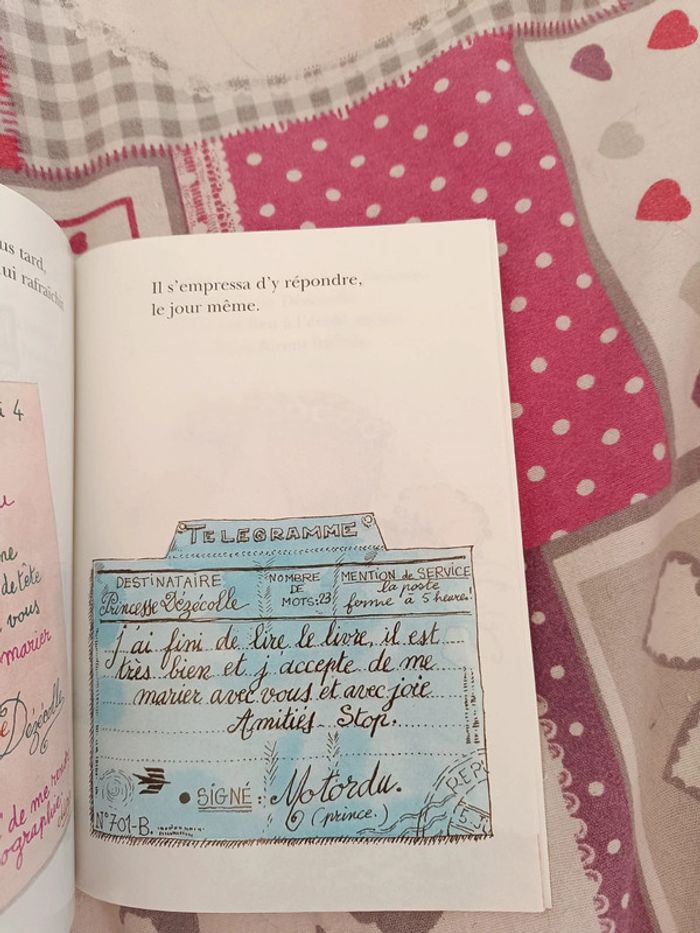 us tard,
ui rafraîchir
à 4
de tête
vous
marier
Dézécolle
de me
Il s'empressa d'y répondre,
le jour même.
TELEGRAMME
DESTINATAIRE
Princesse Dézécolle
NOMBRE
DE
MOTS:23
MENTION de SERVICE
la poste
ferme à 5 heure!
j'ai fini de lire le livre, il est
très bien et j accepte de me
marier avec vous et avec joie
Amitiés Stop.
SIGNÉ : Motordu.
(prince.)
N°701-B.
REPU